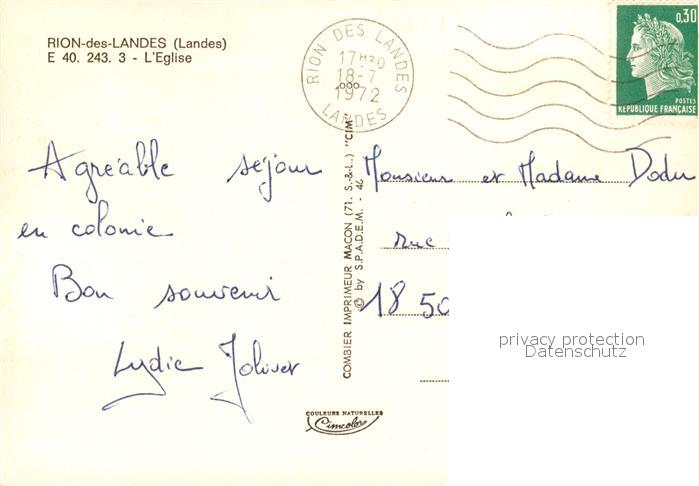 RION-des-LANDES (Landes)
E 40. 243. 3 - L'Eglise
RION DES LANDES
17H30
18-7
1972
LANDES
0,30
POSTES
REPUBLIQUE FRANÇAISE
Agréable séjour
en colonie
Bon souvenir
Lydie Joliver
COMBIER IMPRIMEUR MACON (71. S.-&-L.) "CIM"
© by S.P.A.D.E.M. - 46
Monsieur et Madame Dodu
rue
18 50
privacy protection
Datenschutz
COULEURS NATURELLES
Cimcolor